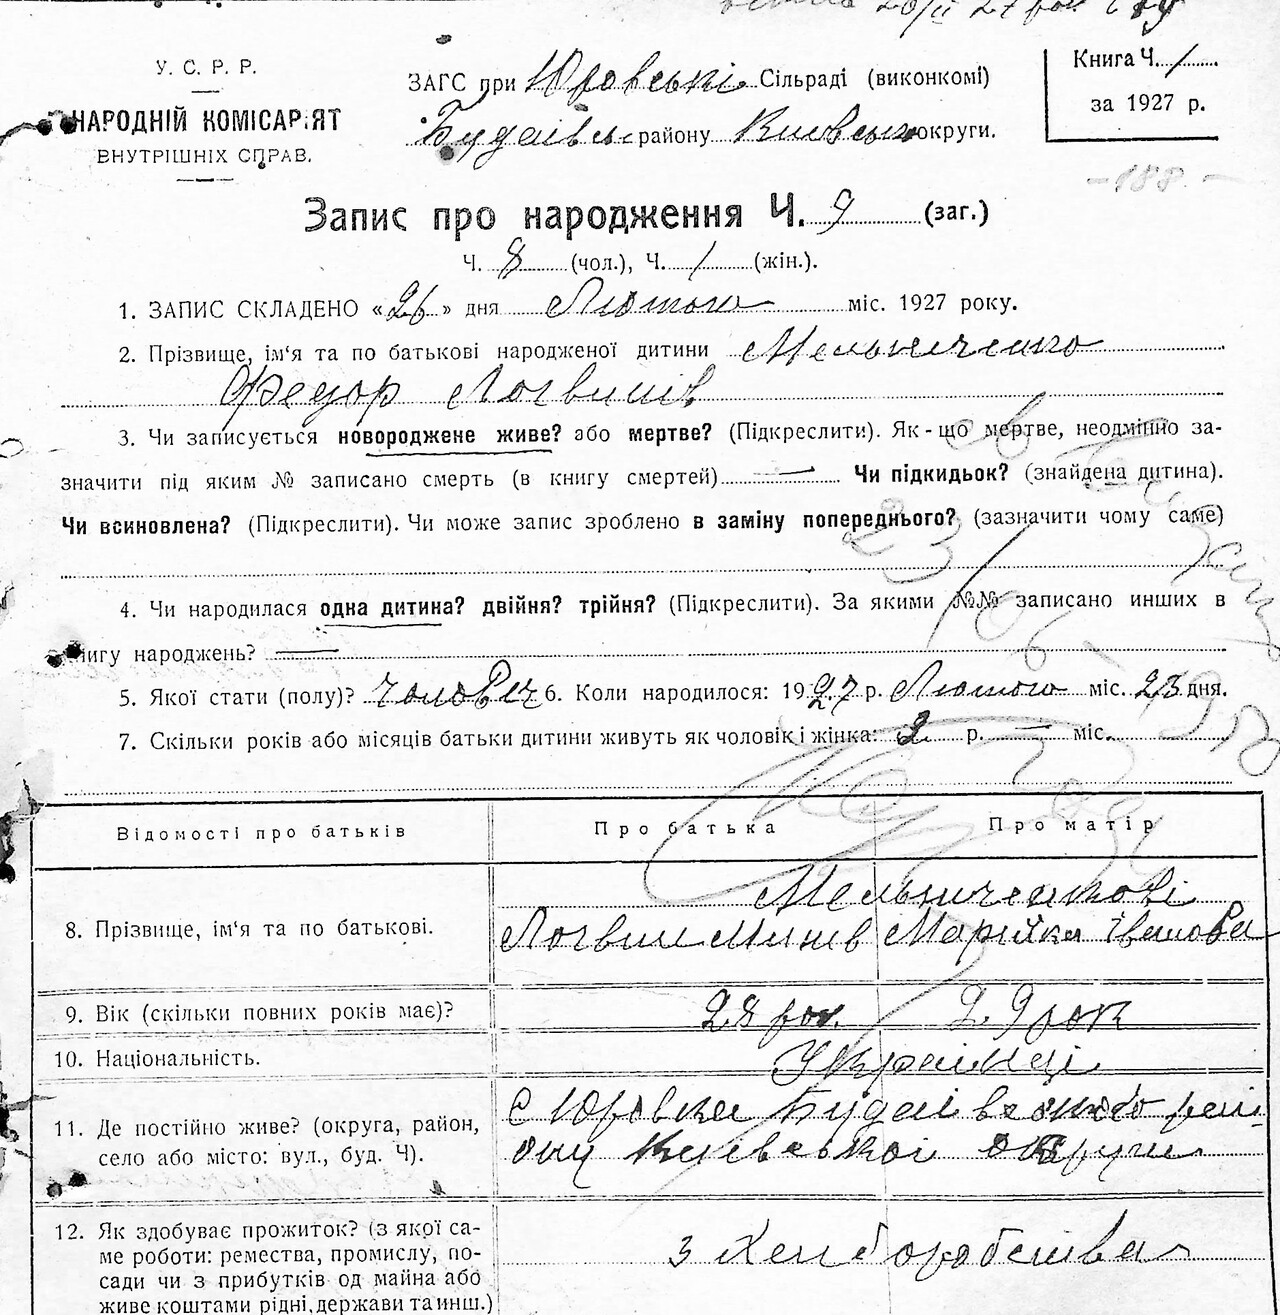 20/II 27
У. С. Р. Р.
НАРОДНІЙ КОМІСАРІЯТ
ВНУТРІШНІХ СПРАВ.
ЗАГС при Юровські Сільраді (виконкомі)
Будаївсь району Киівсько округи.
Книга Ч. 1
за 1927 р.
- 188. -
Запис про народження Ч. 9 (заг.)
Ч. 8 (чол.), Ч. 1 (жін.).
1. ЗАПИС СКЛАДЕНО «26» дня Лютого міс. 1927 року.
2. Прізвище, ім'я та по батькові народженої дитини Мельниченко
Федор Логвинів
3. Чи записується новороджене живе? або мертве? (Підкреслити). Як-що мертве, неодмінно за-
значити під яким № записано смерть (в книгу смертей) — Чи підкидьок? (знайдена дитина).
Чи всиновлена? (Підкреслити). Чи може запис зроблено в заміну попереднього? (зазначити чому саме)
4. Чи народилася одна дитина? двійня? трійня? (Підкреслити). За якими №№ записано инших в
книгу народжень? —
5. Якої стати (полу)? чоловіч 6. Коли народилося: 1927 р. Лютого міс. 23 дня.
7. Скільки років або місяців батьки дитини живуть як чоловік і жінка: 2 р. — міс.
Відомості про батьків Про батька Про матір
Мельниченкові
8. Прізвище, ім'я та по батькові. Логвин Минів Марійка Іванова
9. Вік (скільки повних років має)? 28 рок. 29 рок
10. Національність. Українці
с Юровка Будаівського рай
11. Де постійно живе? (округа, район,
ону Киевської округи
село або місто: вул., буд. Ч).
12. Як здобуває прожиток? (з якої са-
ме роботи: ремества, промислу, по-
з хліборобства
сади чи з прибутків од майна або
живе коштами рідні, держави та инш.)